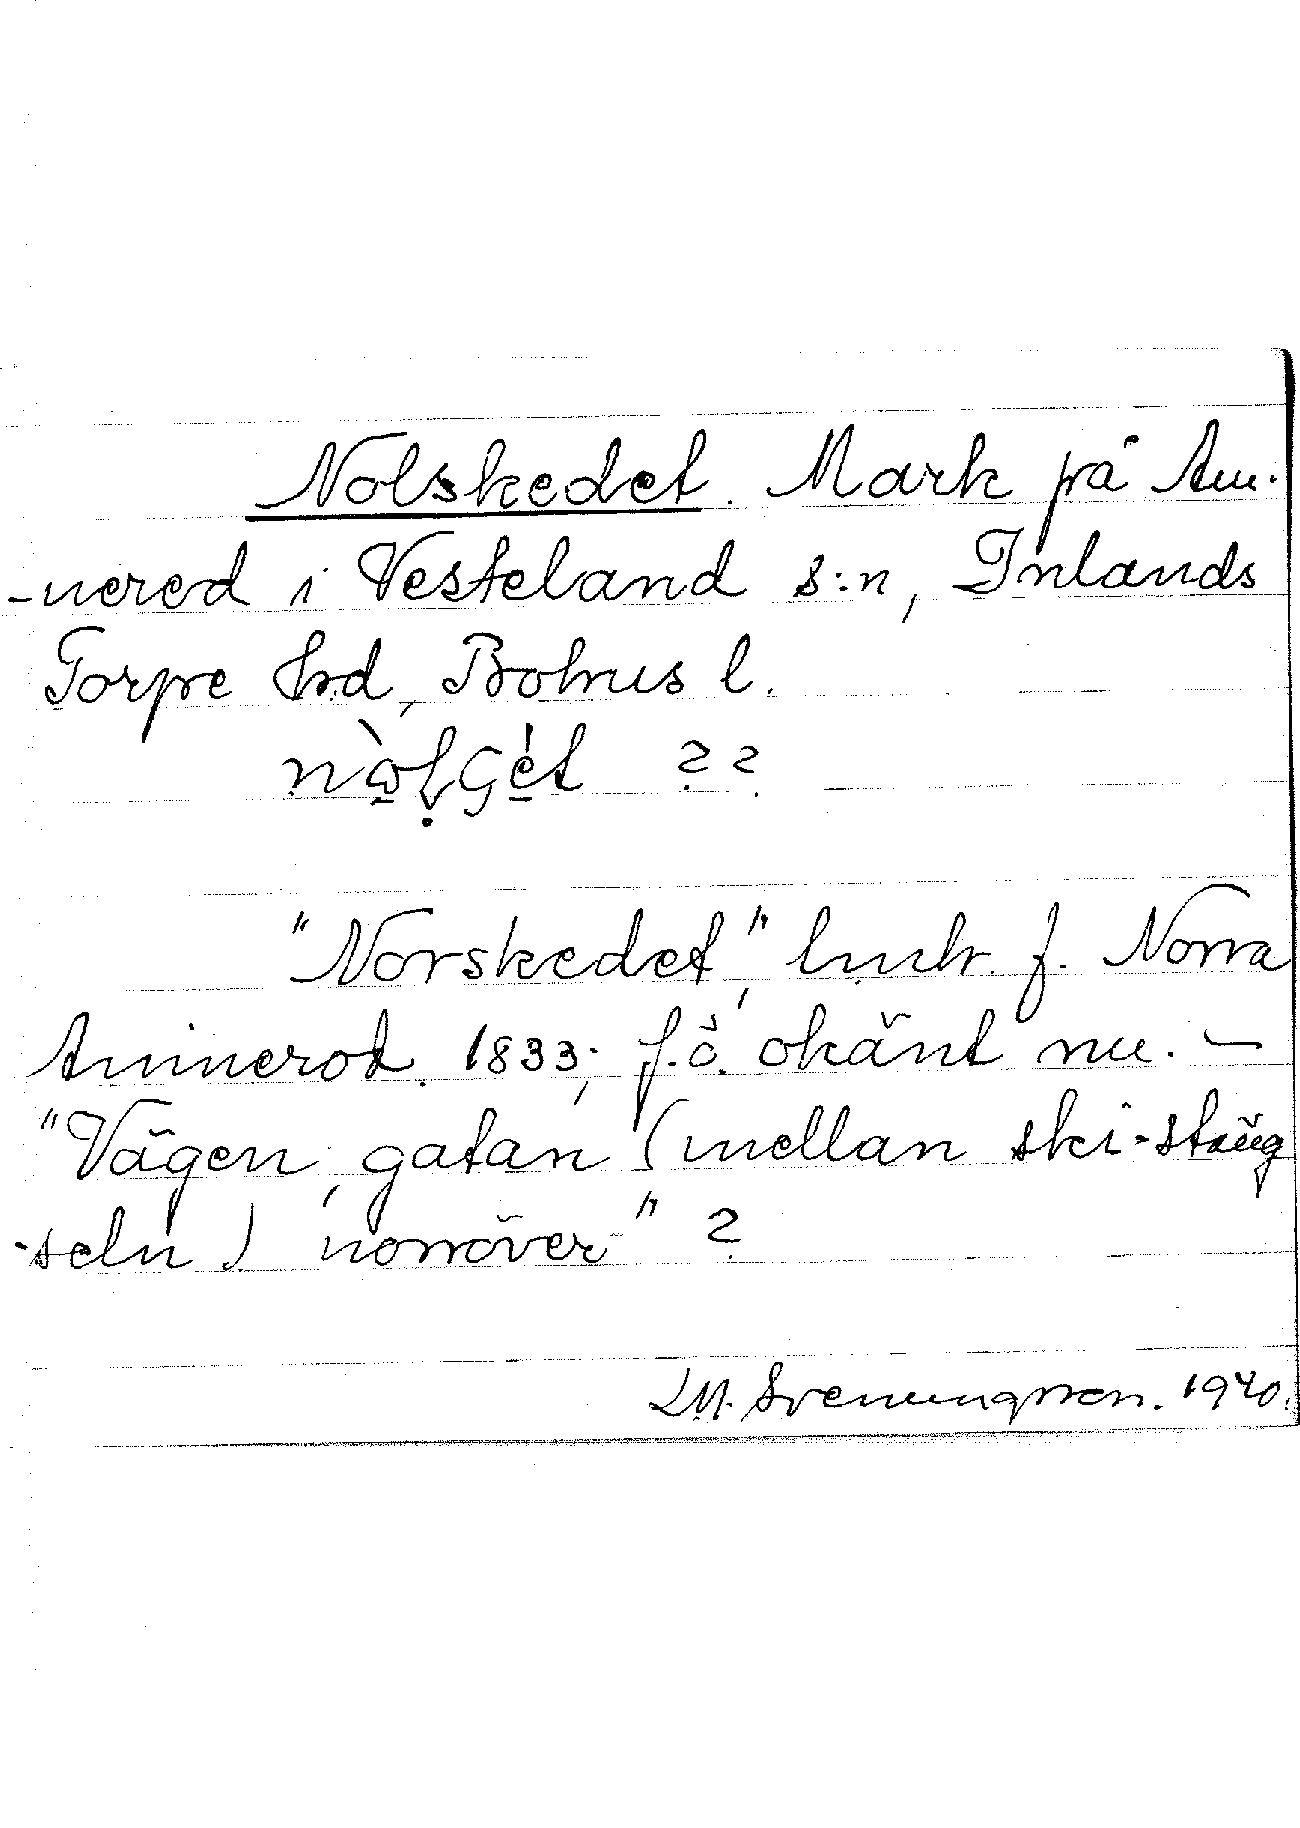 Nolskedet. Mark på Am-
-nered i Vesteland s:n, Inlands
Torpe hrd, Bohus l.
??
"Norskedet", lmtr. f. Norra
Amnerod. 1833; f.ö. okänt nu. —
"Vägen, gatan (mellan ski-stäng
-seln) norröver" ?
LM. Svenungsson. 1940.